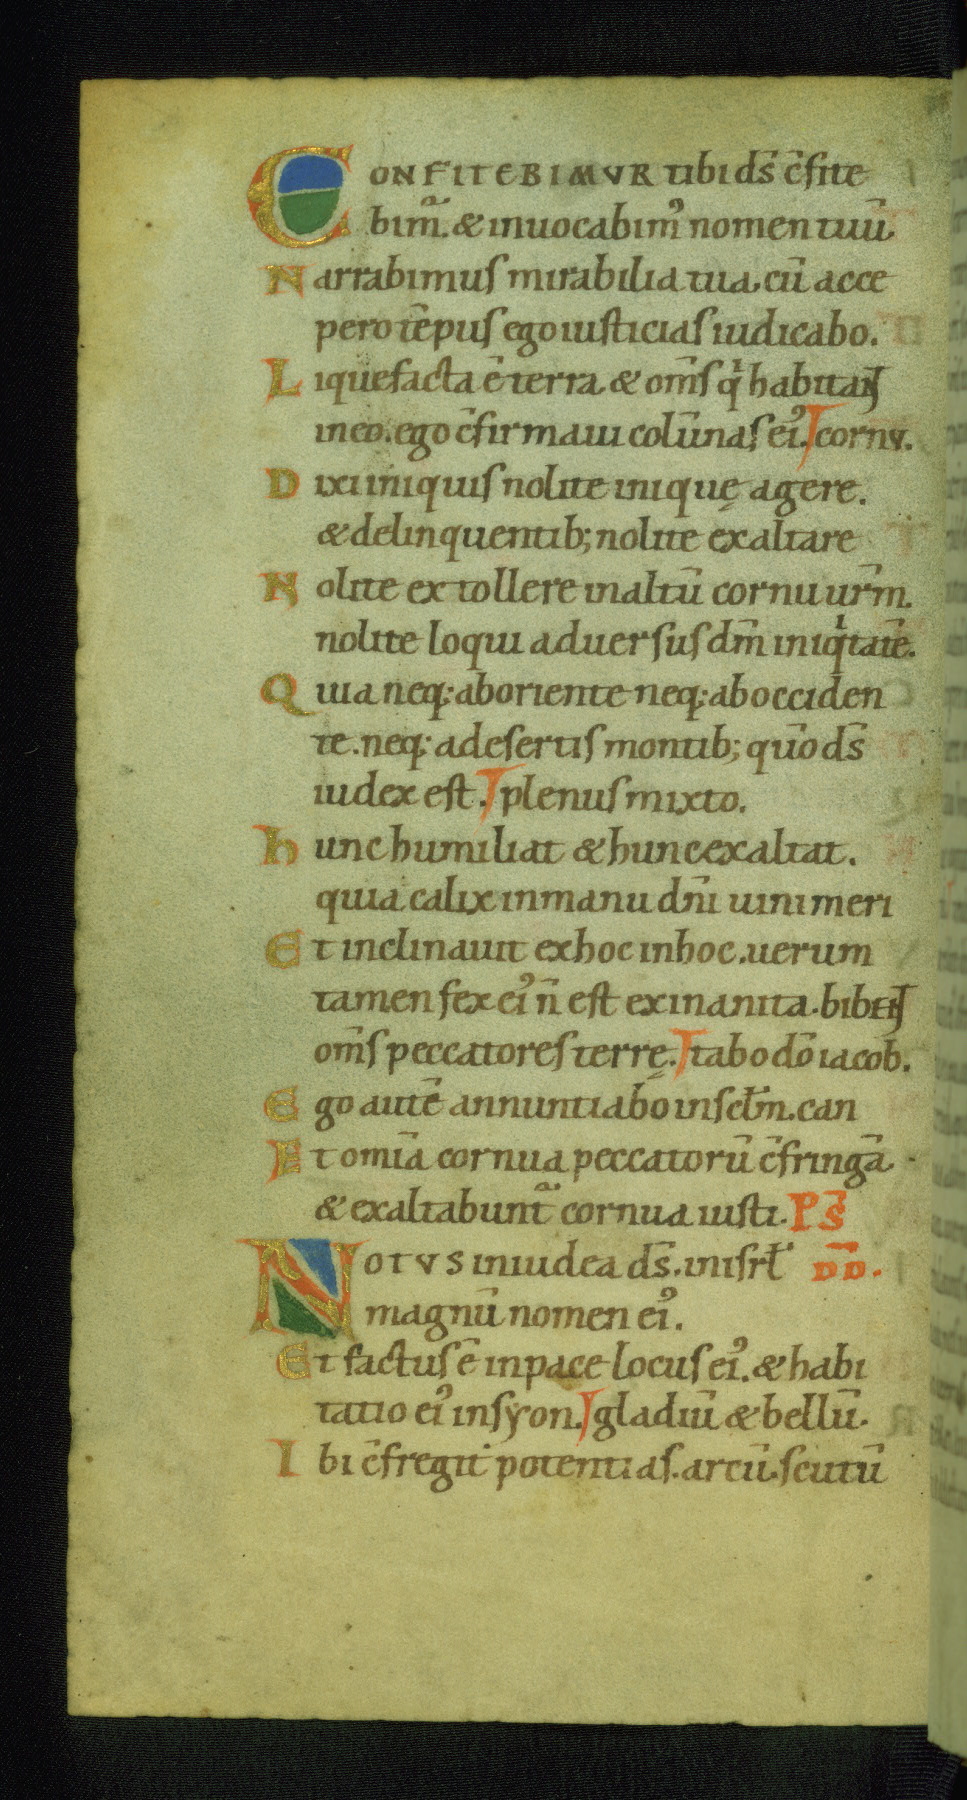 CONFITEBIMVR tibi ds̄ c̄fite
bim᷑. & inuocabimꝰ nomen tuū.
Narrabimus mirabilia tua. cū acce
pero tēpus ego iusticias iudicabo.
Liquefacta ē terra. & om̄s qͥ habitant
in eo. ego c̄firmaui colūnas eiꝰ. cornv.
Dixi iniquis nolite inique̜ agere.
& delinquentib; nolite exaltare
Nolite extollere inaltū cornu ur̄m.
nolite loqui aduersus dm̄ iniqͥtatē.
Quia neq: aboriente neq: abocciden
te. neq: adesertis montib; quō ds̄
iudex est. plenus mixto.
hunc humiliat & hunc exaltat.
quia calix inmanu dn̄i uini meri
Et inclinauit exhoc inhoc. uerum
tamen fex eiꝰ n̄ est exinanita. bibent
om̄s peccatores terre̜. tabo dō iacob.
Ego autē annuntiabo inscl̄m. can
Et om̄ia cornua peccatorū c̄fringā.
& exaltabunt᷑ cornua iusti. Ps̄
NOTVS iniudea ds̄. inisrl̄ DD̄.
magnū nomen eiꝰ.
Et factus ē inpace locus eiꝰ. & habi
tatio eiꝰ insyon. gladiū & bellū.
Ibi c̄fregit potentias. arcū. scutū